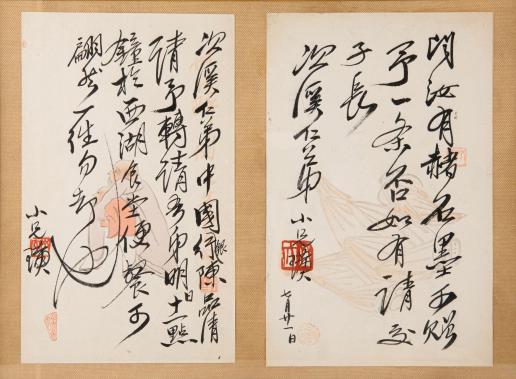 聞汝有赭石墨可贈
予一条否如有請交
子長
次溪仁弟 小兄璜
七月廿一日
次溪仁弟中國銀行陳品清
請予轉請吾弟明日十一點
鐘於西湖食堂便餐可
翩然一往勿却也
小兄璜